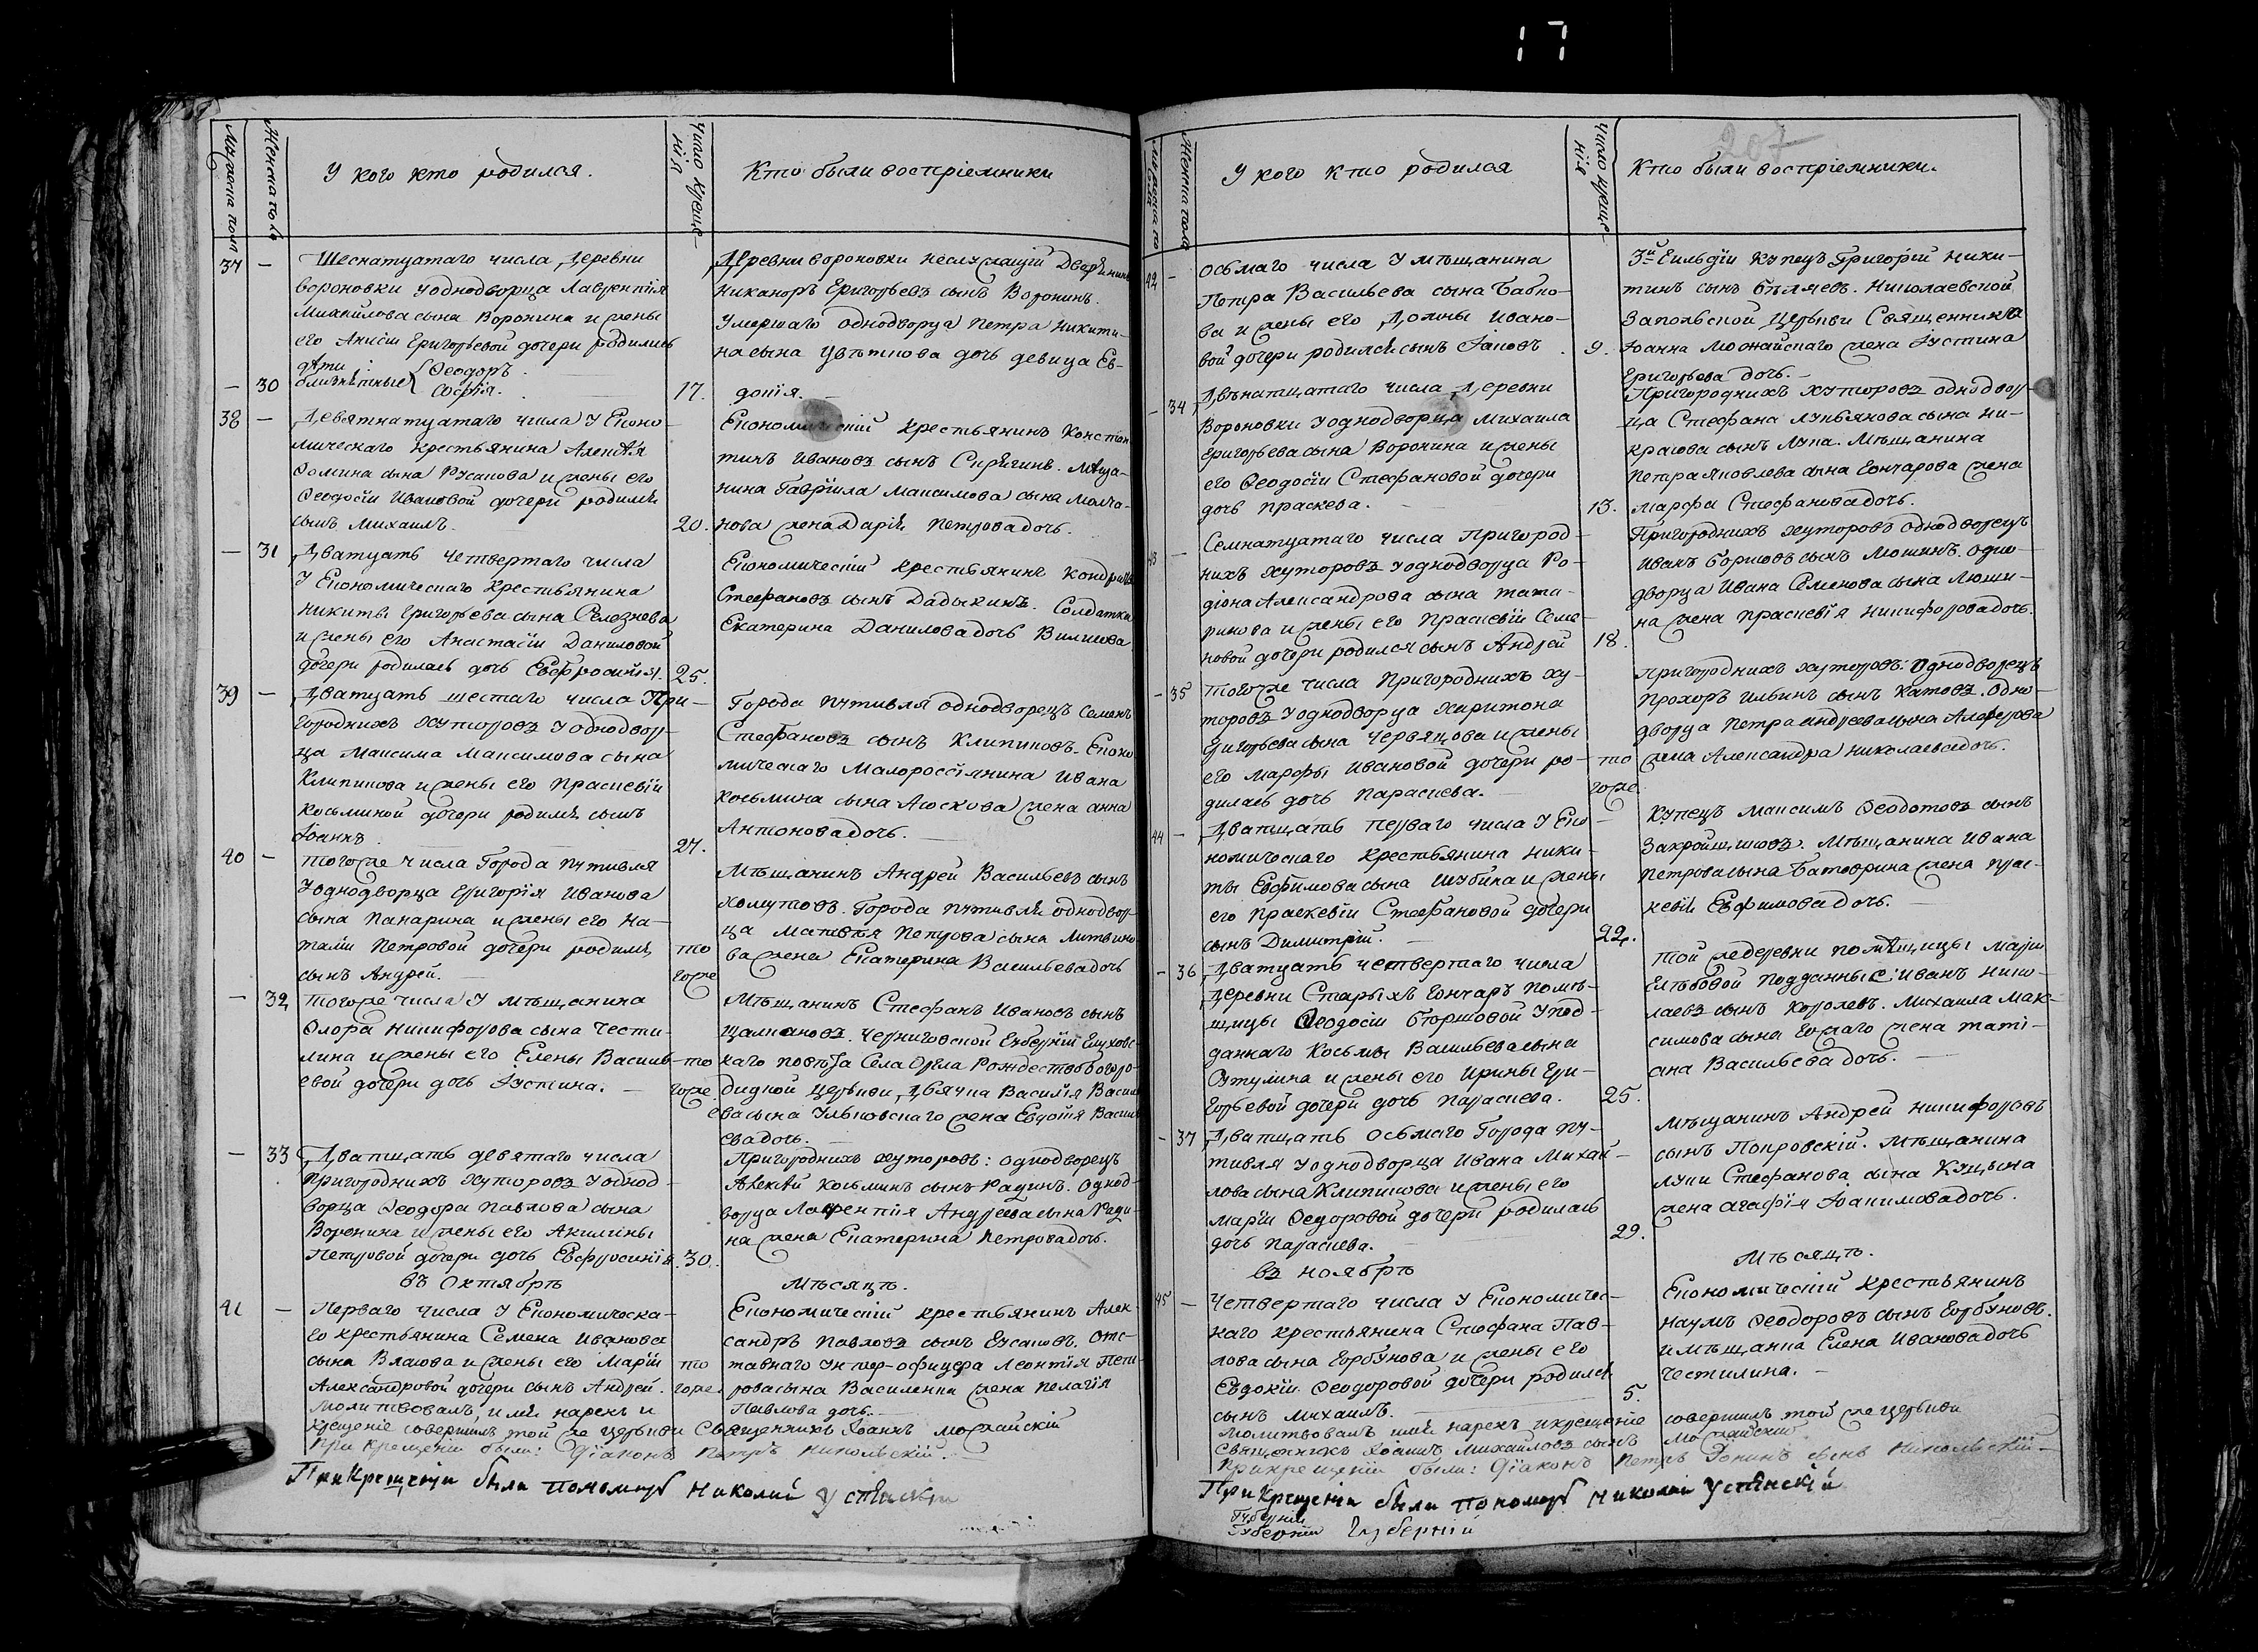 17
Мужеска пола
Женска пола
У кого кто родился.
Число крещенія
Кто были воспріемники
37 —
Шеснатцатаго числа Деревни
вороновки у однодворца Лаврентія
Михайлова сына Воронина и жены
его Анисіи Григорьевой дочери родились
дѣти: Ѳеодоръ.
— 30 близнѣтные Софія. 17.
Деревни вороновки неслужащій Дворянинъ
Никаноръ Григорьевъ сынъ Воронинъ.
Умершаго однодворца Петра Никити-
на сына Цвѣткова дочь девица Ев-
докія.
38 —
Девятнатцатаго числа У Еконо-
мическаго крестьянина Алексѣя
Фомина сына Русанова и жены его
Ѳеодосіи Ивановой дочери родился
сынъ Михаилъ. 20.
Економическій крестьянинъ Констан
тинъ Ивановъ сынъ Мѣща-
нина Гавріила Максимова сына Молча-
нова жена Дарія Петрова дочь.
— 31
Дватцать четвертаго числа
У Економическаго Крестьянина
Никиты Григорьева сына Селезнева
и жены его Анастасіи Даниловой
дочери родилась дочь Евфросинія. 25.
Економическій крестьянинъ
Стефановъ сынъ Дадыкинъ. Солдатка
Екатерина Данилова дочь
39 —
Дватцать шестаго числа При-
городнихъ хуторовъ У однодвор-
ца Максима Максимова сына
Клипикова и жены его Праскевіи
Косьминой дочери родился сынъ
Іоаннъ. 27.
Города Путивля однодворецъ Семенъ
Стефановъ сынъ Клипиковъ. Еконо
мическаго Малороссіянина Ивана
Косьмина сына жена Анна
Антонова дочь.
40 —
Тогоже числа Города Путивля
У однодворца Григорія Иванова
сына Панарина и жены его На-
таліи Петровой дочери родился
сынъ Андрей.
то
гоже
Мѣщанинъ Андрей Васильевъ сынъ
Хомутовъ. Города Путивля однодвор-
ца Матвѣя Петрова сына Литвино-
ва жена Екатерина Васильева дочь
— 32
Тогоже числа У мѣщанина
Флора Никифорова сына Чести-
лина и жены его Елены Василь-
евой дочери дочь Іустина.
то
гоже.
Мѣщанинъ Стефанъ Ивановъ сынъ
Черниговской Губерніи Глуховс-
каго повѣта Села Рождество Богоро-
дицкой Церкви, Дьячка Василія Василь
ева сына Ульяновскаго жена Евдокія Василь
ева дочь.
— 33
Дватцать девятаго числа
Пригороднихъ хуторовъ У однод-
ворца Ѳеодора Павлова сына
Воронина и жены его Акилины
Петровой дочери дочь Евфросинія. 30.
Пригороднихъ хуторовъ: однодворецъ
Алексѣй Косьминъ сынъ Радинъ. Однод-
ворца Лаврентія Андреева сына Ради-
на жена Екатерина Петрова дочь.
въ Октябрѣ Мѣсяцѣ.
41 —
Перваго числа У Економическа-
го крестьянина Семена Иванова
сына Власова и жены его Маріи
Александровой дочери сынъ Андрей.
то
гоже.
Економическій крестьянинъ Алек-
сандръ Павловъ сынъ Отс-
тавнаго унтер-офицера Леонтія Пет-
рова сына Василенка жена Пелагія
Павлова дочь.
Молитвовалъ, имя нарекъ и
крещеніе совершилъ той же церькви Священникъ Іоаннъ Можайскій
При крещеніи были: Діаконъ Петръ Никольскій.
При Крещеніи были пономарь Николай Успѣнскій
207
Мужеска пола
Женска пола
У кого кто родился
Число крещенія
Кто были воспріемники.
42 —
Осьмаго числа У мѣщанина
Петра Васильева сына Бабко-
ва и жены его Домны Ивано-
вой дочери родился сынъ Іаковъ. 9.
3й Гильдіи Купецъ Григорій Ники-
тинъ сынъ Бѣляевъ. Николаевской
Запольской Церькви Священника
Іоанна Можайскаго жена Іустина
Григорьева дочь.
— 34
Двѣнатцатаго числа Деревни
Вороновки У однодворца Михаила
Григорьева сына Воронина и жены
его Ѳеодосіи Стефановой дочери
дочь Праскева. 13.
Пригороднихъ хуторовъ однодвор-
ца Стефана Лукьянова сына Ни-
красова сынъ Лука. Мѣщанина
Петра Яковлева сына Гончарова жена
Марфа Стефанова дочь.
43 —
Семнатцатаго числа Пригород-
нихъ хуторовъ У однодворца Ро-
діона Александрова сына Тата-
ринова и жены его Праскевіи Семе-
новой дочери родился сынъ Андрей 18.
Пригороднихъ хуторовъ однодворецъ
Иванъ Борисовъ сынъ Люшинъ. одно-
дворца Ивана Семенова сына Люши-
на жена Праскевія Никифорова дочь.
— 35
Тогоже числа Пригороднихъ ху-
торовъ У однодворца Харитона
Григорьева сына Червяцова и жены
его Марфы Ивановой дочери ро-
дилась дочь Параскева.
то
гоже.
Пригороднихъ хуторовъ: Однодворецъ
Прохоръ Ильинъ сынъ Катовъ. Одно-
дворца Петра Андреева сына
жена Александра Николаева дочь.
44 —
Дватцать перваго числа У Еко-
номическаго крестьянина Ники-
ты Евфимова сына Шубина и жены
его Праскевіи Стефановой дочери
сынъ Димитрій. 22.
Купецъ Максимъ Ѳеодотовъ сынъ
Закройщиковъ. Мѣщанина Ивана
Петрова сына Батоврина жена Прас-
кевія Евфимова дочь.
— 36
Дватцать четвертаго числа
Деревни Старыхъ Гончаръ помѣ-
щицы Ѳеодосіи Борщовой У под-
даннаго Косьмы Васильева сына
и жены его Ирины Гри-
горьевой дочери дочь Параскева. 25.
Той же деревни помѣщицы Маріи
Глѣбовой Подданные: Иванъ Нико-
лаевъ сынъ Королевъ. Михаила Мак-
симова сына жена Таті-
ана Васильева дочь.
— 37
Дватцать осьмаго Города Пу-
тивля У однодворца Ивана Михай-
лова сына Клипикова и жены его
Маріи Ѳедоровой дочери родилась
дочь Параскева. 29.
Мѣщанинъ Андрей Никифоровъ
сынъ Покровскій. Мѣщанина
Луки Стефанова сына Куцына
жена Агафія Іоакимова дочь.
въ Ноябрѣ Мѣсяцѣ.
45 —
Четвертаго числа У Економичес-
каго крестьянина Стефана Пав-
лова сына Горбунова и жены его
Евдокіи Ѳеодоровой дочери родился
сынъ Михаилъ. 5.
Економическій крестьянинъ
Наумъ Ѳеодоровъ сынъ Горбуновъ.
и мѣщанка Елена Иванова дочь
Честилина.
Молитвовалъ имя нарекъ и крещеніе совершилъ той же церькви
Священникъ Іоаннъ Михайловъ сынъ Можайскій
При крещеніи были: Діаконъ Петръ Іонинъ сынъ Никольскій
При Крещеніи были пономарь Николай Успѣнскій
Губерніи
Губерніи Губерній